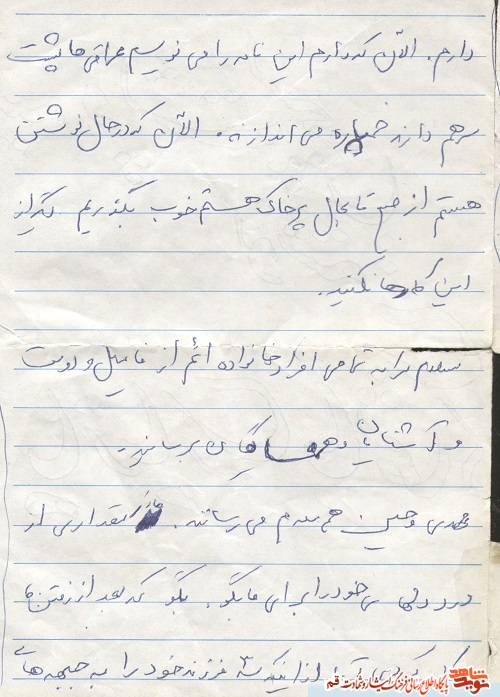 دارم. الآن که دارم این نامه را می نویسم عراقی ها پشت
سر هم دارند خمپاره می اندازند. الآن که در حال نوشتن
هستم از صبح تا بحال پر خاک هستم خوب بگذریم دیگر از
این کارها نکنید.
سلام مرا به تمامی افراد خانواده اعم از فامیل و دوست
و آشنایان و همسایگان برسانید.
مهدی و حسین هم سلام می رسانند. مادر مقداری از
درد دلهای خود را برای ما بگو. بگو که بعد از رفتن ما
از اینکه فرزند خود را به جبهه های
شاهد
نوید
پایگاه اطلاع رسانی فرهنگ ایثار و شهادت قم